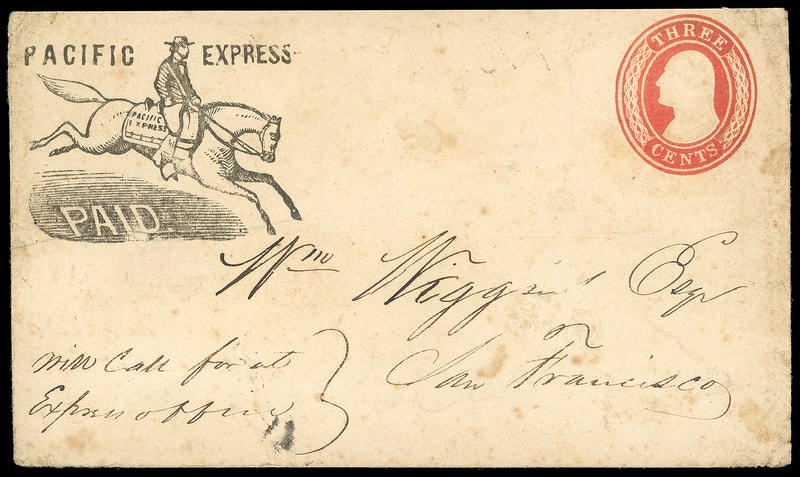 PACIFIC EXPRESS
PACIFIC
EXPRESS
PAID
THREE
CENTS
Wm Wiggins Esqr
San Francisco
will Call for at
Express office